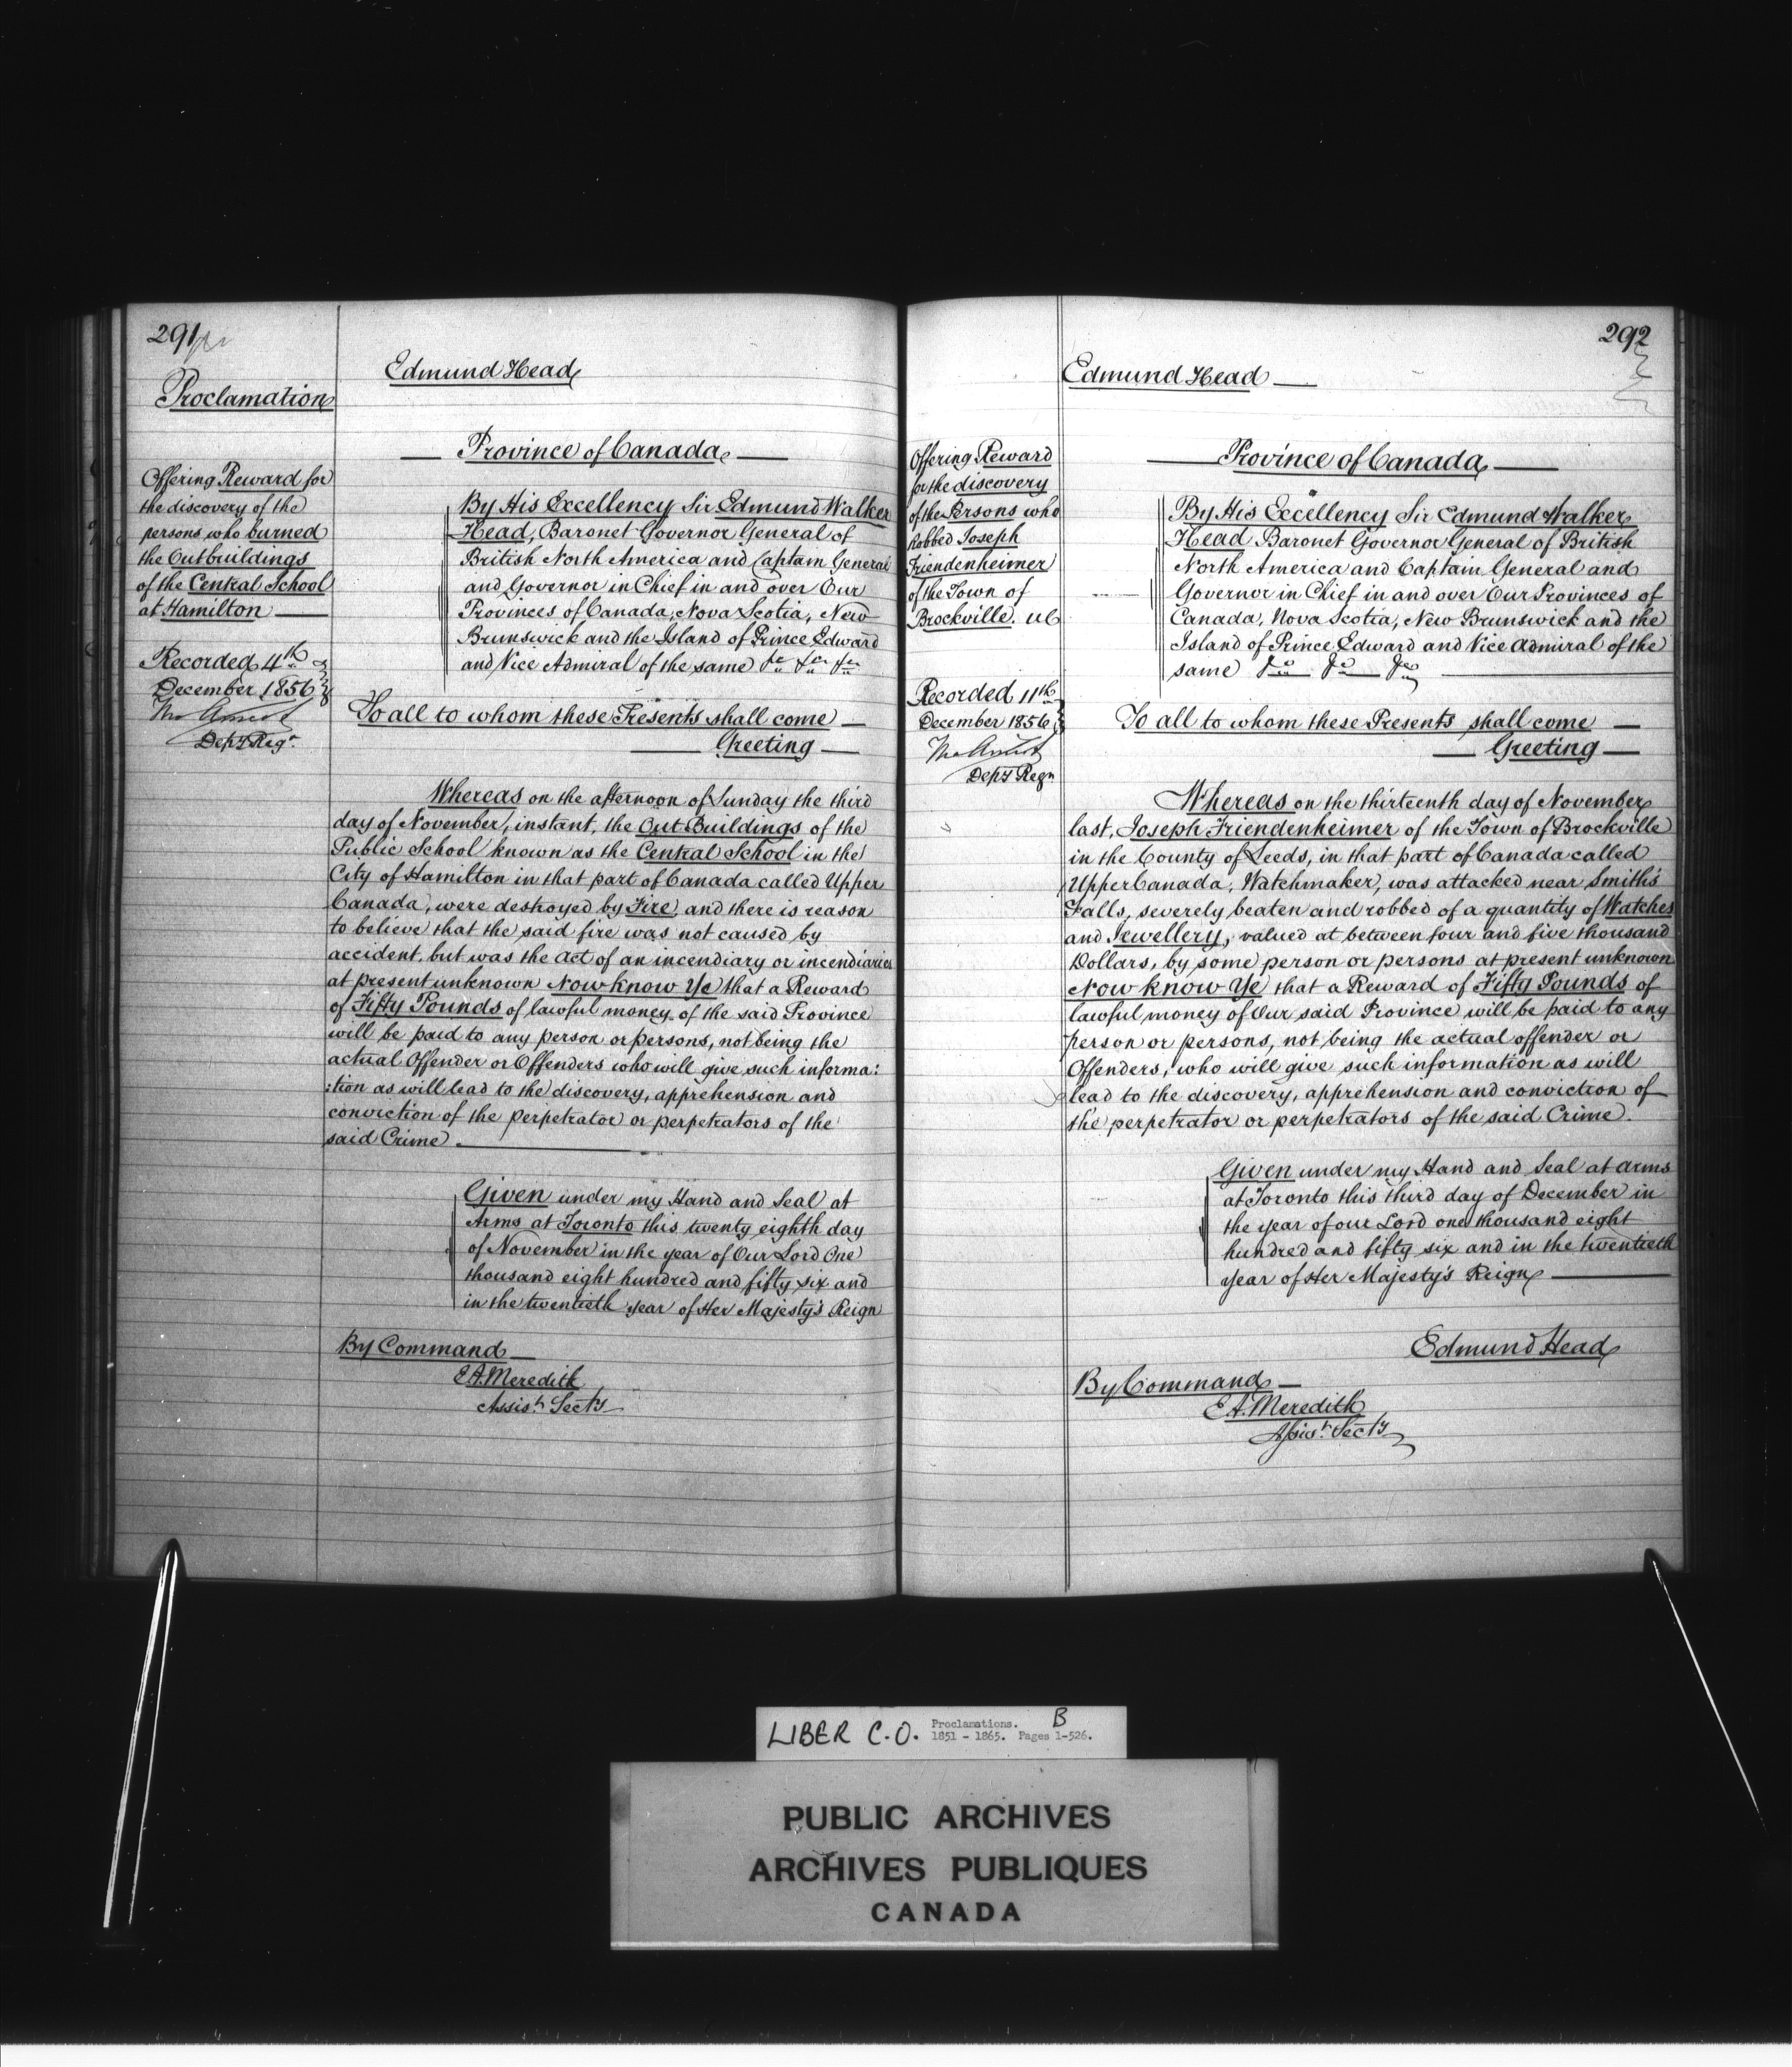 291
Proclamation
Offering Reward for
the discovery of the
persons who burned
the Outbuildings
of the Central School
at Hamilton
Recorded 4th
December 1856
Depy Regr.
Edmund Head
Province of Canada
By His Excellency Sir Edmund Walker
Head, Baronet Governor General of
British North America and Captain General
and Governor in Chief in and over Our
Provinces of Canada, Nova Scotia, New
Brunswick and the Island of Prince Edward
and Vice Admiral of the same &c &c &c
To all to whom these Presents shall come
Greeting
Whereas on the afternoon of Sunday the third
day of November, instant, the Out Buildings of the
Public School known as the Central School in the
City of Hamilton in that part of Canada called Upper
Canada, were destroyed by Fire, and there is reason
to believe that the said fire was not caused by
accident, but was the act of an incendiary or incendiaries
at present unknown Now know Ye that a Reward
of Fifty Pounds of lawful money of the said Province
will be paid to any person or persons, not being the
actual Offender or Offenders who will give such informa:
:tion as will lead to the discovery, apprehension and
conviction of the perpetrator or perpetrators of the
said Crime.
Given under my Hand and Seal at
Arms at Toronto this twenty eighth day
of November in the year of Our Lord One
thousand eight hundred and fifty six and
in the twentieth year of Her Majesty's Reign
By Command
E.A. Meredith
Assist. Secty
292
Offering Reward
for the discovery
of the Persons who
Robbed Joseph
Friendenheimer
of the Town of
Brockville. UC
Recorded 11th
December 1856
Depy Regr
Edmund Head
Province of Canada
By His Excellency Sir Edmund Walker
Head Baronet Governor General of British
North America and Captain General and
Governor in Chief in and over Our Provinces of
Canada, Nova Scotia, New Brunswick and the
Island of Prince Edward and Vice Admiral of the
same &c &c &c
To all to whom these Presents shall come
Greeting
Whereas on the thirteenth day of November
last, Joseph Friendenheimer of the Town of Brockville
in the County of Leeds, in that part of Canada called
Upper Canada, Watchmaker, was attacked near Smith's
Falls, severely beaten and robbed of a quantity of Watches
and Jewellery, valued at between four and five thousand
Dollars, by some person or persons at present unknown
Now know Ye that a Reward of Fifty Pounds of
lawful money of Our said Province will be paid to any
person or persons, not being the actual offender or
Offenders, who will give such information as will
lead to the discovery, apprehension and conviction of
the perpetrator or perpetrators of the said Crime.
Given under my Hand and Seal at arms
at Toronto this third day of December in
the year of our Lord one thousand eight
hundred and fifty six and in the twentieth
year of Her Majesty's Reign
Edmund Head
By Command
E.A. Meredith
Assist. Secty
LIBER C.O. Proclamations. B
1851 - 1865. Pages 1-526.
PUBLIC ARCHIVES
ARCHIVES PUBLIQUES
CANADA